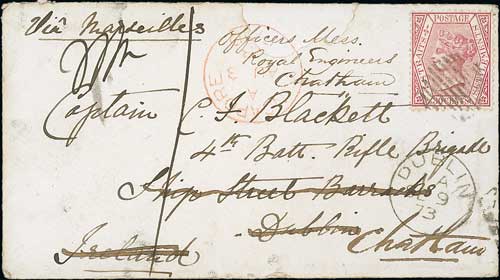 Via Marseilles
Officers Mess.
Royal Engineers
Chatham
Captain C. J. Blackett
4th Batt. Rifle Brigade
Ship Street Barracks
Dublin
Ireland Chatham
POSTAGE
DUBLIN
A
9
3